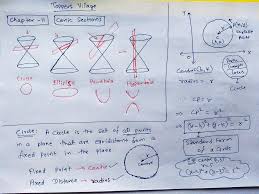 Toppers Village
Chapter - 11
Conic Sections
Circle
Ellipse
Parabola
Hyperbola
Circle: A circle is the set of all points
in a plane that are equidistant from a
fixed point in the plane
Fixed Point → Centre
Fixed Distance → radius
Y
X
P(x,y)
(h,k)
Centre (h,k)
radius = r
CP = r
⇒ CP² = r²
⇒ (x-h)² + (y-k)² = r²
Standard form
of a Circle